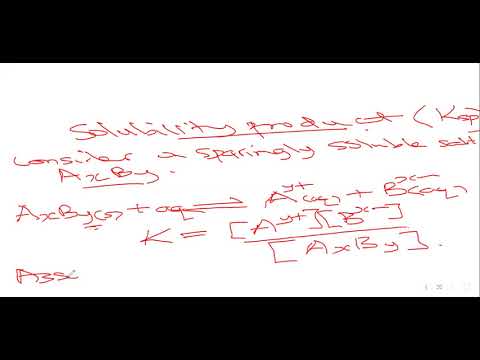 Solubility product (Ksp)
consider a sparingly soluble salt
AxBy.
AxBy(s) + aq ⇌ A^y+(aq) + B^x-(aq)
K = [A^y+][B^x-]
[AxBy].